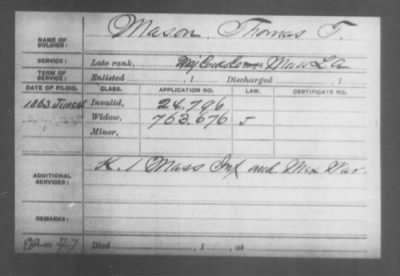 NAME OF SOLDIER: Mason, Thomas T.
SERVICE: Late rank,
TERM OF SERVICE: Enlisted , 1 Discharged , 1
DATE OF FILING. CLASS. APPLICATION NO. LAW. CERTIFICATE NO.
1863 Invalid, 24.796
Widow, 763.676 J
Minor,
ADDITIONAL SERVICES: K. 1 Mass Inf and Mex War.
REMARKS:
Died , 1 , at